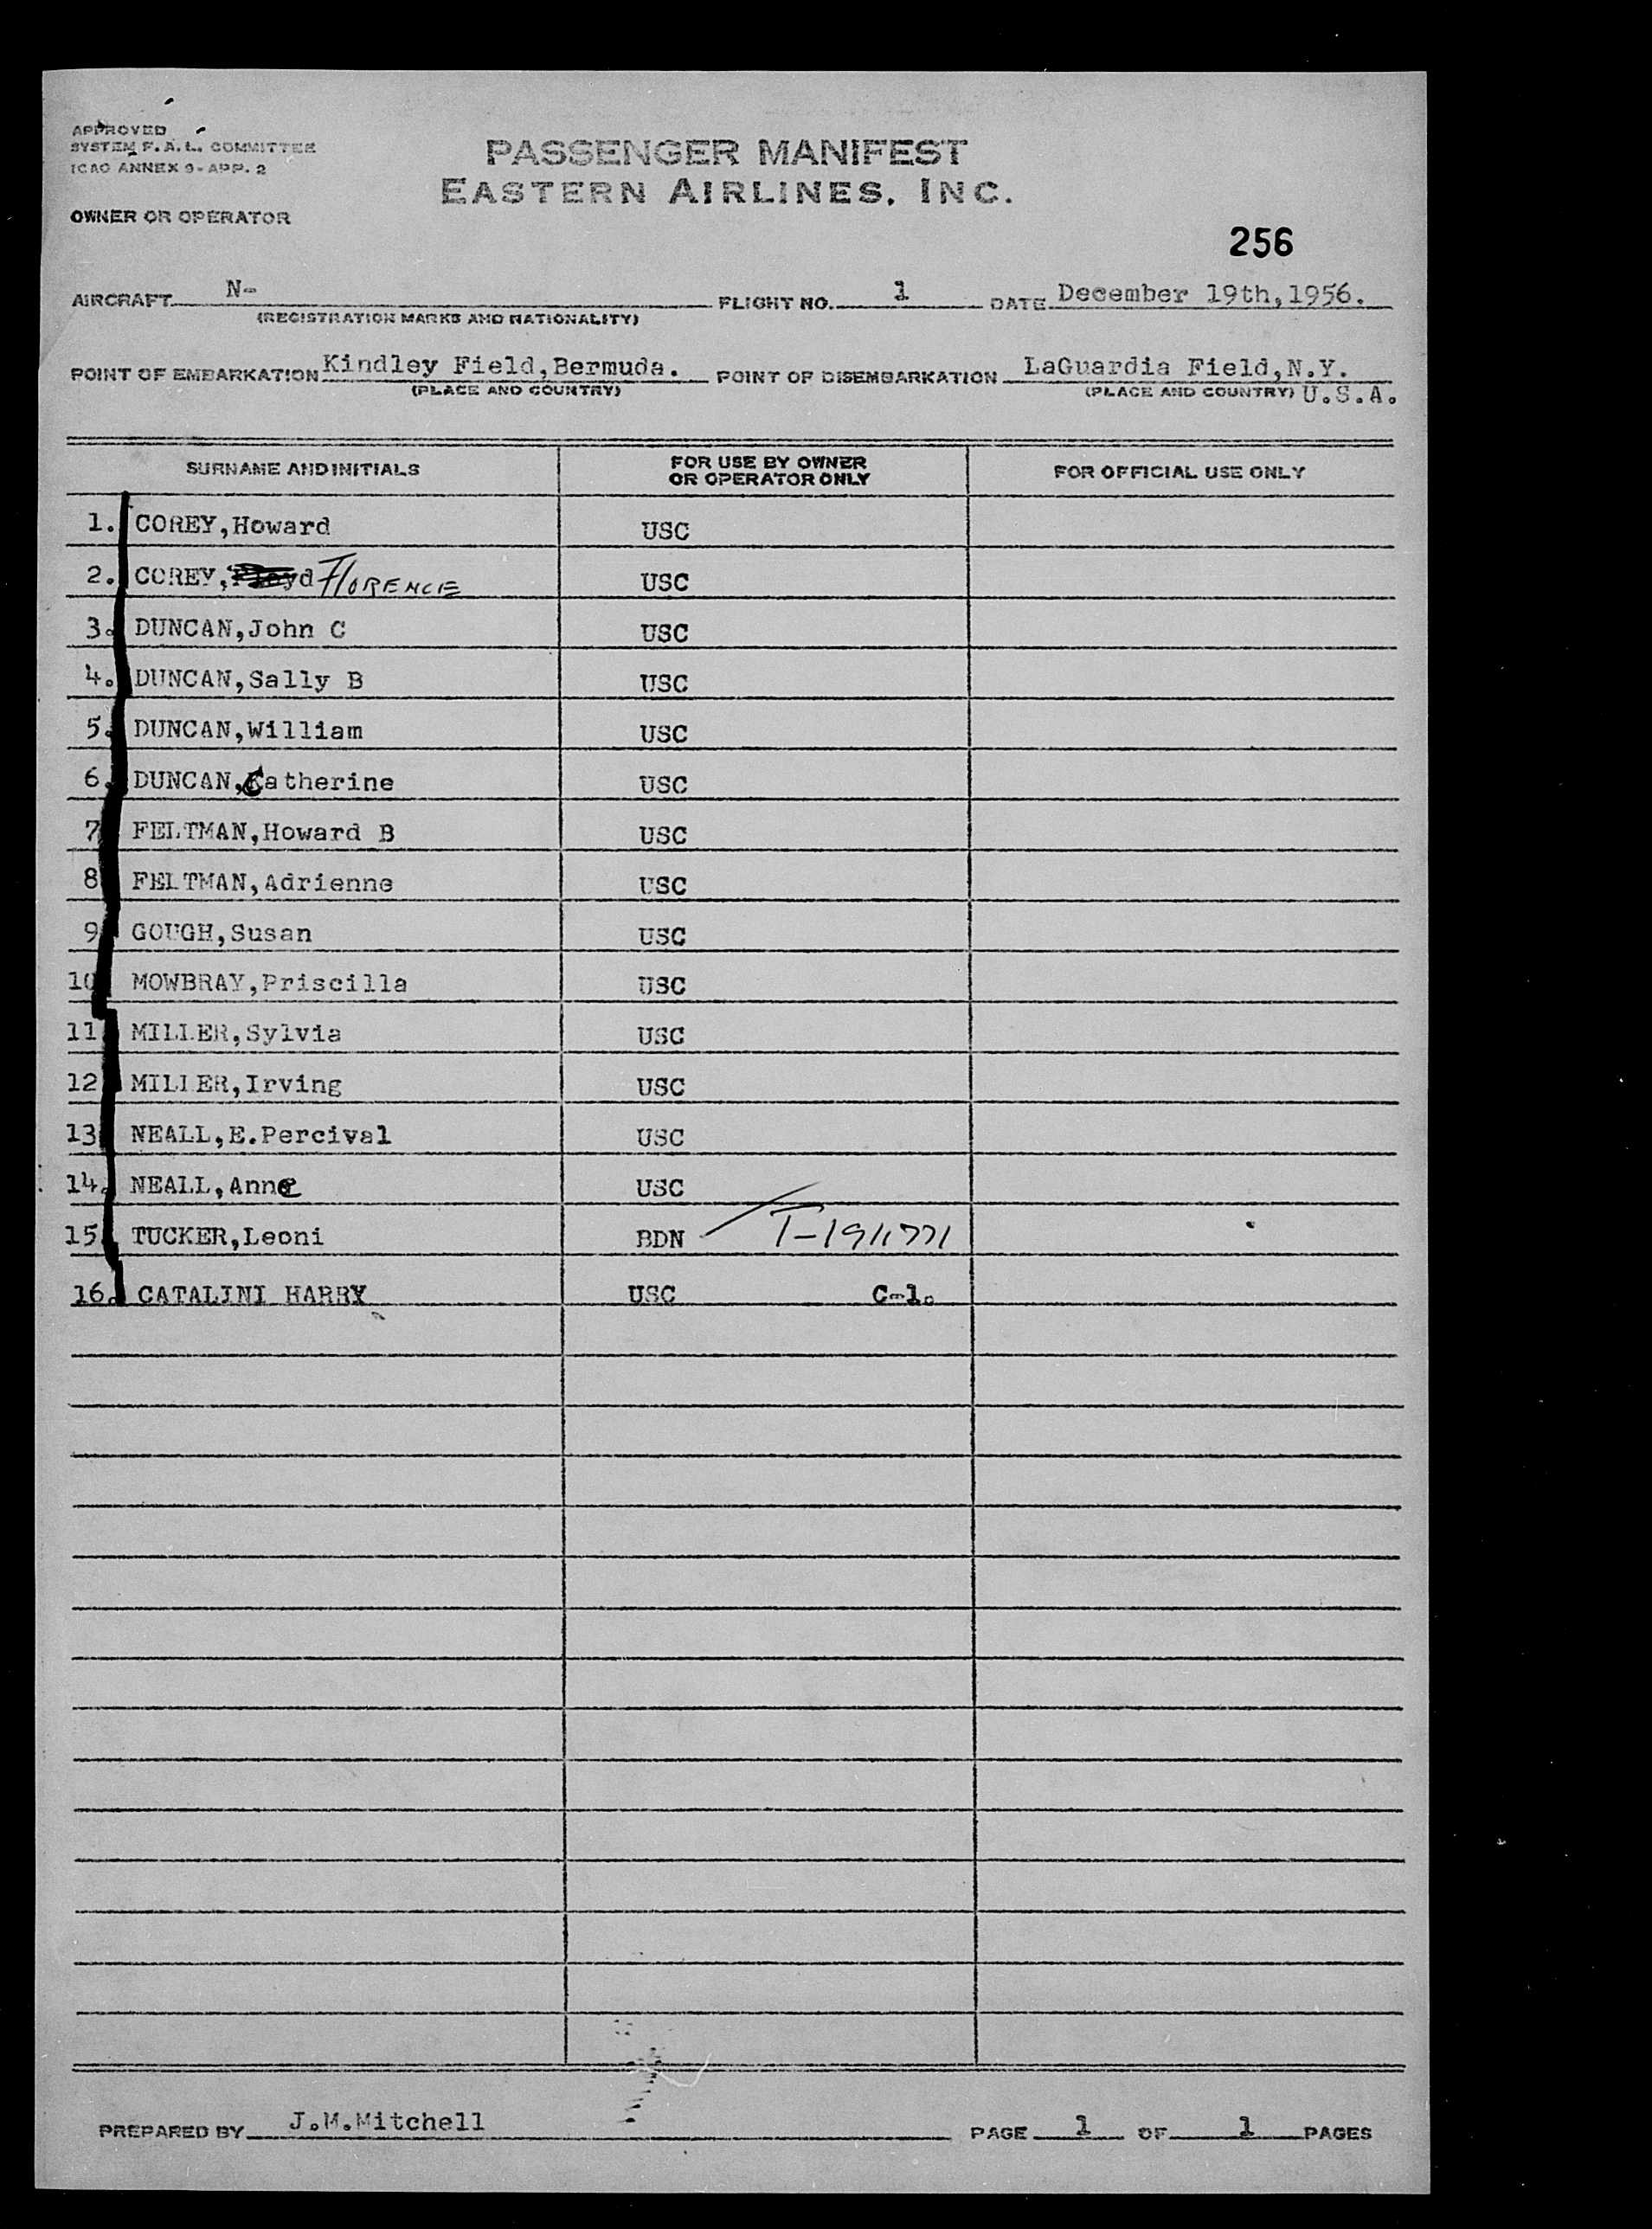 APPROVED
SYSTEM F. A. L. COMMITTEE
ICAO ANNEX 9 - APP. 2
PASSENGER MANIFEST
EASTERN AIRLINES, INC.
OWNER OR OPERATOR
256
AIRCRAFT N- FLIGHT NO. 1 DATE December 19th,1956.
(REGISTRATION MARKS AND NATIONALITY)
POINT OF EMBARKATION Kindley Field,Bermuda. POINT OF DISEMBARKATION LaGuardia Field,N.Y.
(PLACE AND COUNTRY) (PLACE AND COUNTRY) U.S.A.
SURNAME AND INITIALS FOR USE BY OWNER OR OPERATOR ONLY FOR OFFICIAL USE ONLY
1. COREY,Howard USC
2. COREY, FLORENCE USC
3. DUNCAN,John C USC
4. DUNCAN,Sally B USC
5. DUNCAN,William USC
6. DUNCAN,Catherine USC
7 FELTMAN,Howard B USC
8 FELTMAN,Adrienne USC
9 GOUGH,Susan USC
10 MOWBRAY,Priscilla USC
11. MILLER,Sylvia USC
12 MILLER,Irving USC
13 NEALL,E.Percival USC
14. NEALL,Anne USC
15. TUCKER,Leoni BDN T-1911771
16. CATALINI HARRY USC C-1.
PREPARED BY J.M.Mitchell PAGE 1 OF 1 PAGES